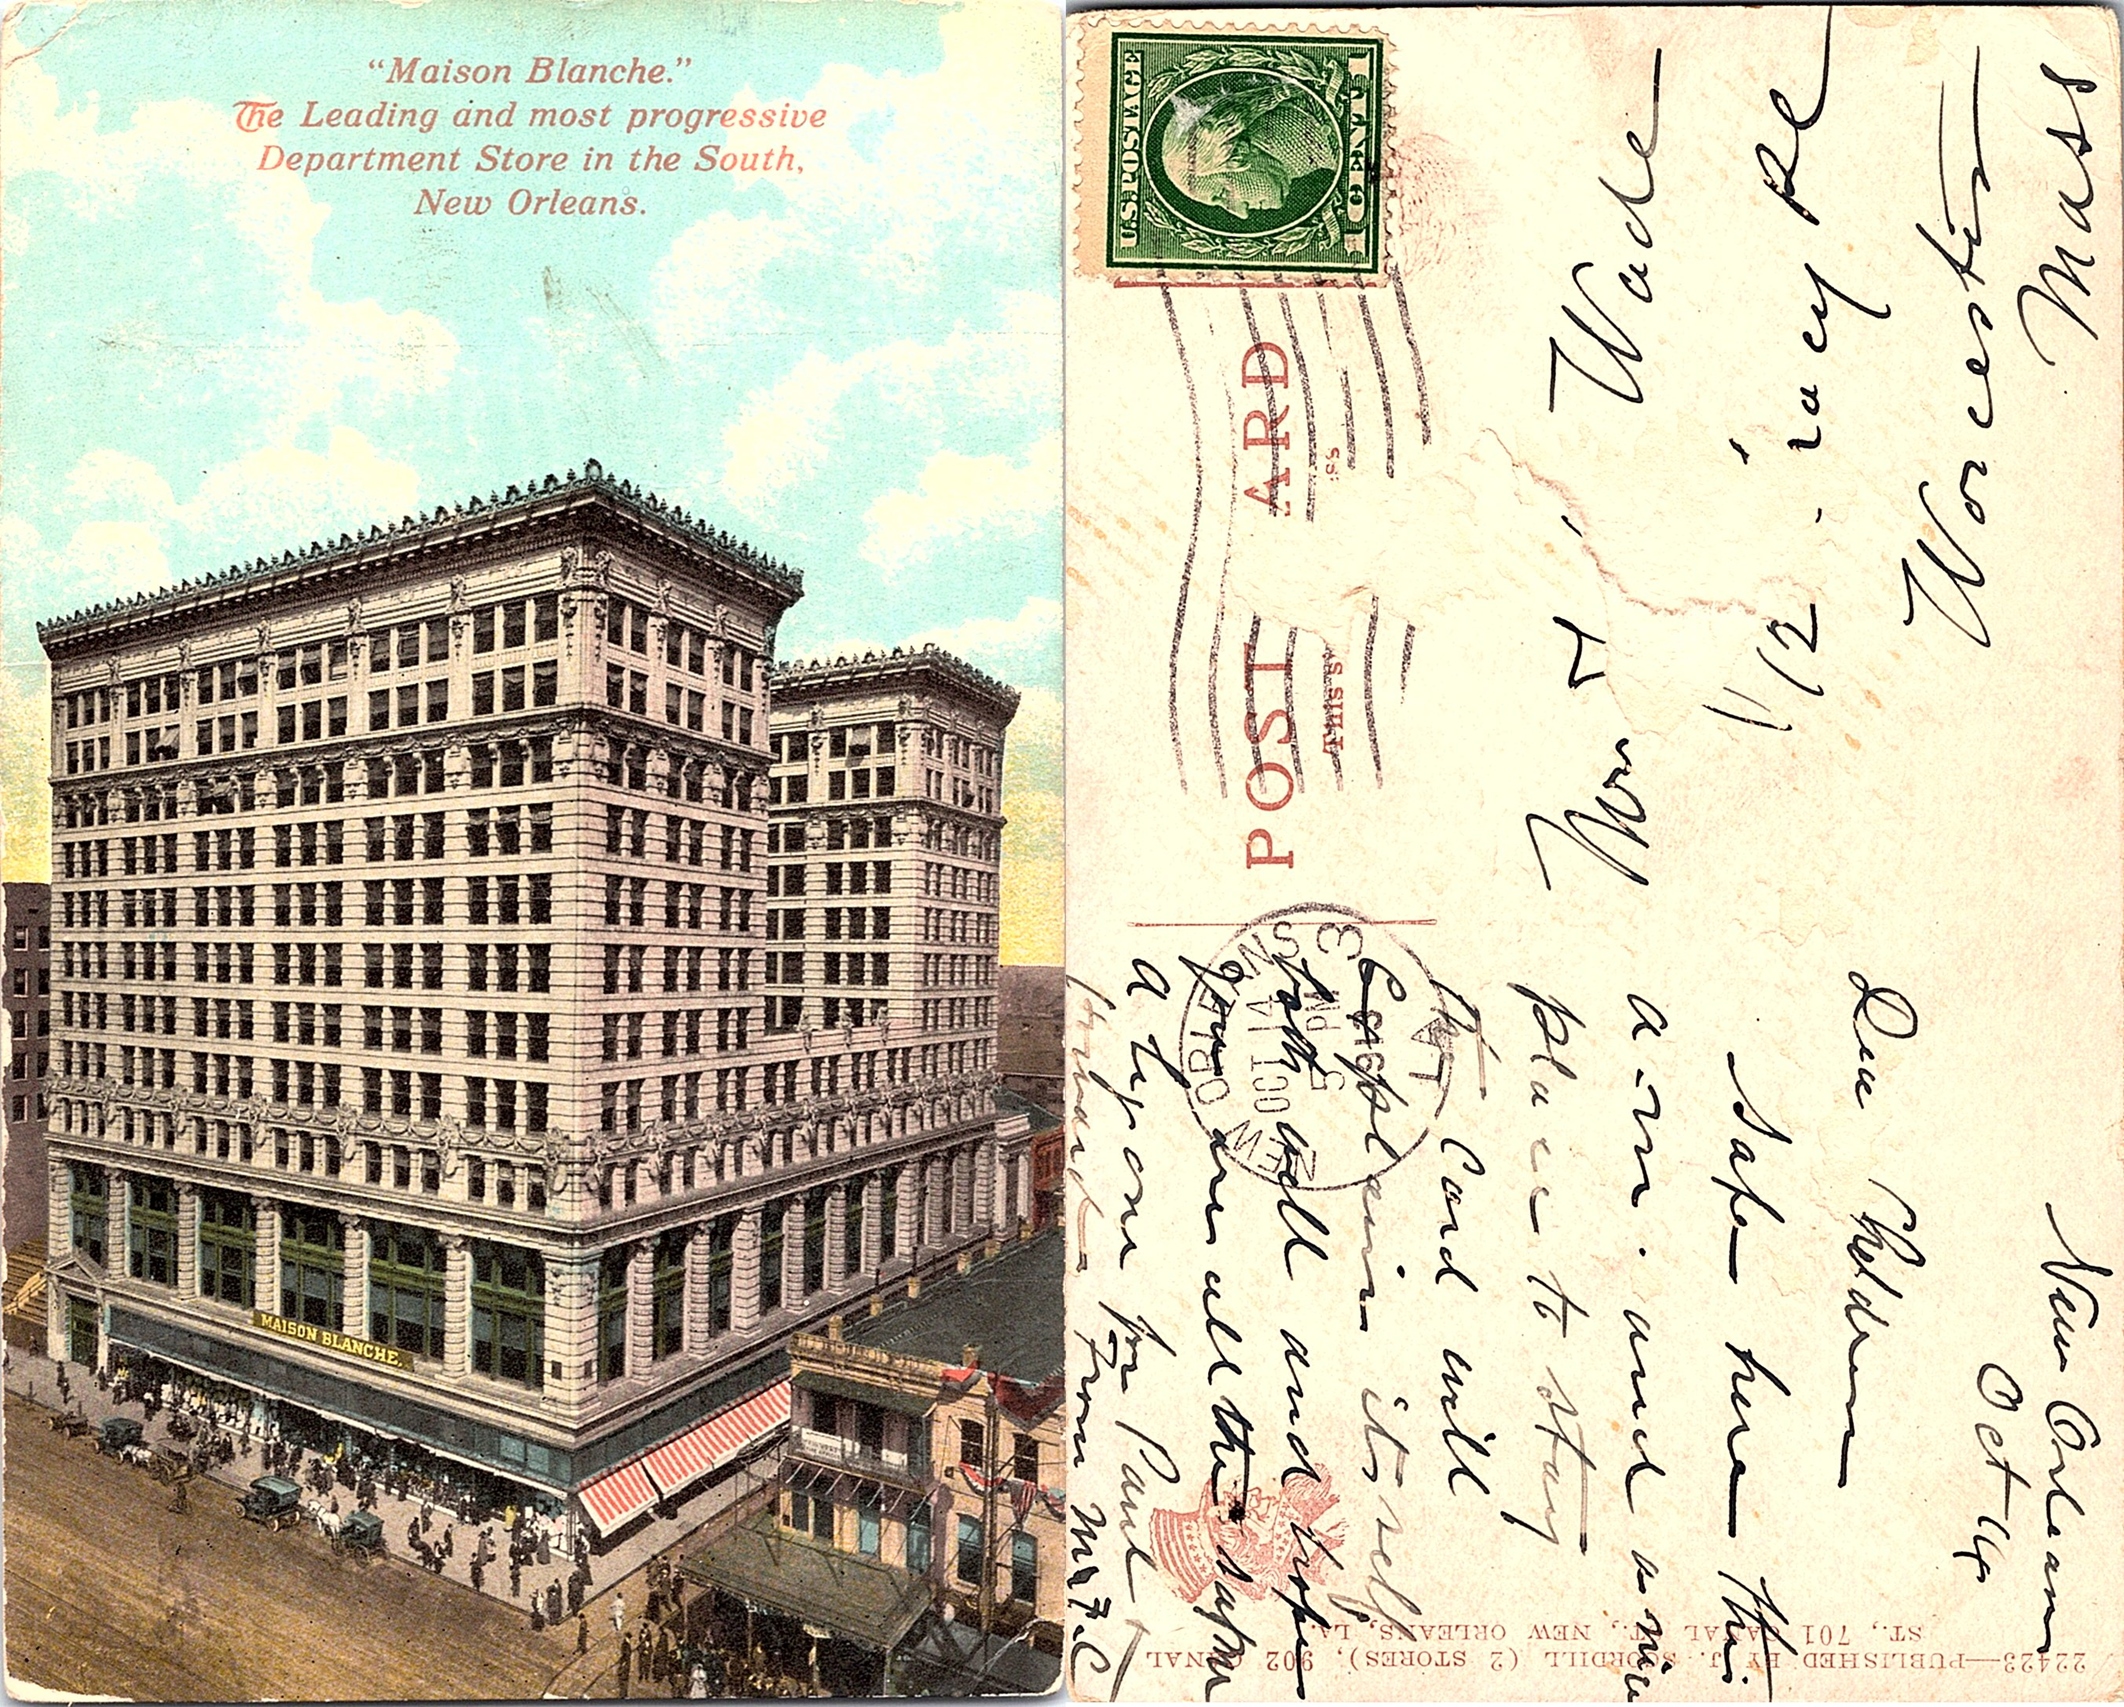 "Maison Blanche."
The Leading and most progressive
Department Store in the South,
New Orleans.
MAISON BLANCHE.
U.S. POSTAGE
1 CENT 1
POST ARD
This s ss
NEW ORLEANS
LA
OCT 14
5 PM
3
Mr & Wade
12 acey Pl
Worcester
Mass
New Orleans
Oct 14
Dear Children
Safe here this
a.m. and a nice
place to stay
The Card will
Explain itself
both well and hope
you are all the same
a try one for Paul
Howard From M F C
22423—PUBLISHED BY J. SCORDILL (2 STORES), 902 CANAL
ST., 701 CANAL ST., NEW ORLEANS, LA.